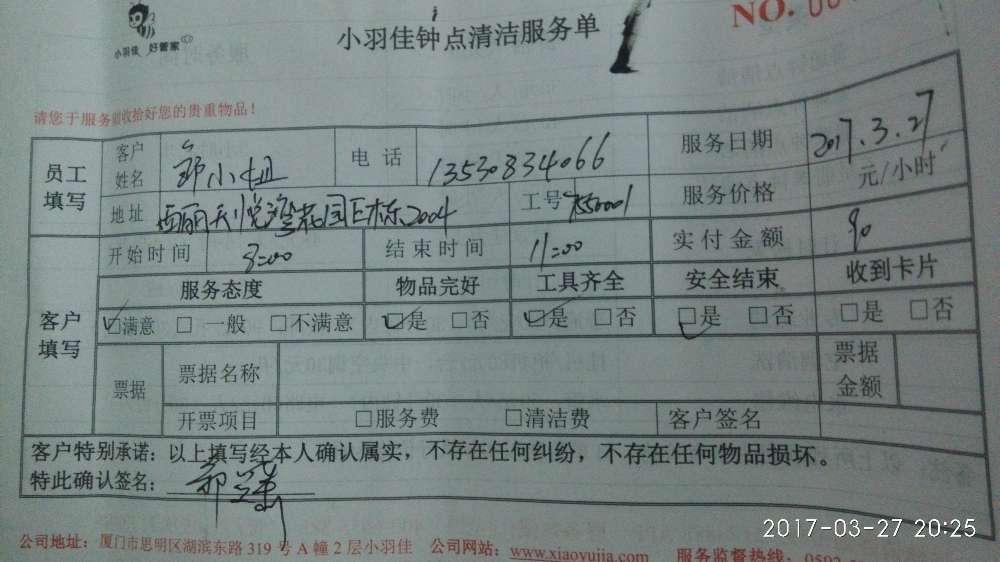 小羽佳 好管家
小羽佳钟点清洁服务单
NO. 00
请您于服务前收拾好您的贵重物品！
员工填写 客户姓名 小姐 电话 13530834066 服务日期 2017.3.27
地址 2004 工号 服务价格 元/小时
客户填写 开始时间 8:00 结束时间 11:00 实付金额 90
服务态度 物品完好 工具齐全 安全结束 收到卡片
□满意 □一般 □不满意 □是 □否 □是 □否 □是 □否 □是 □否
票据 票据名称 票据金额
开票项目 □服务费 □清洁费 客户签名
客户特别承诺：以上填写经本人确认属实，不存在任何纠纷，不存在任何物品损坏。
特此确认签名：
公司地址：厦门市思明区湖滨东路 319 号 A 幢 2 层小羽佳 公司网站：www.xiaoyujia.com 服务监督热线：0592
2017-03-27 20:25